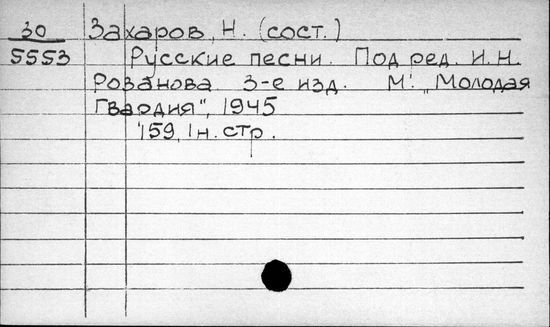 30 Захаров, Н. (сост.)
5553 Русские песни. Под ред. И.Н.
Розанова 3-е изд. М. "Молодая
Гвардия", 1945
159, 1н. стр.